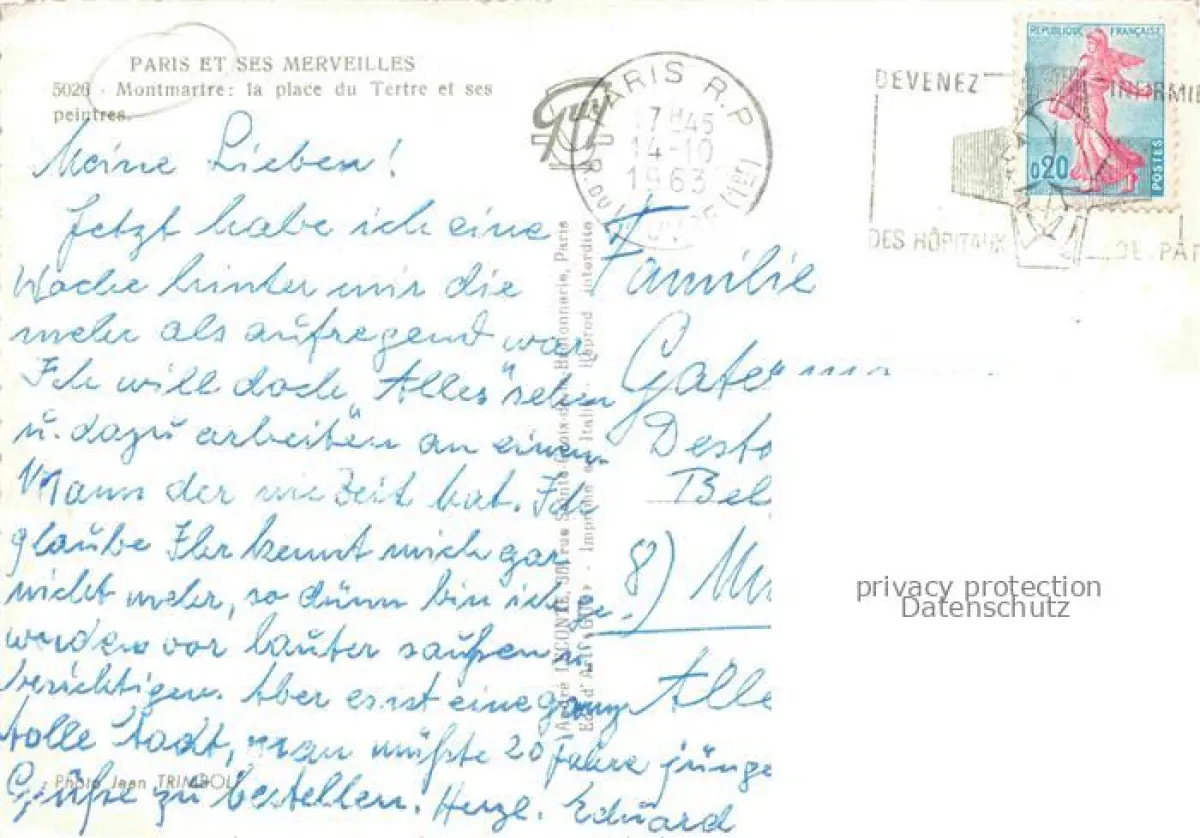 PARIS ET SES MERVEILLES
5026 - Montmartre: la place du Tertre et ses
peintres.
Meine Lieben!
Jetzt habe ich eine
Woche hinter mir die
mehr als aufregend war
Ich will doch "Alles" sehen
u. dazu arbeiten an einem
Mann der nie Zeit hat. Ich
glaube Ihr kennt mich gar
nicht mehr, so dünn bin ich ge-
worden vor lauter saufen u.
berichtigen. Aber es ist eine ganz
tolle Stadt, man müßte 20 Jahre jünge
Grüße zu bestellen. Herzl. Eduard
Photo Jean TRIMBOLI
guy
André LECONTE, rue Sainte-Croix-de-la-Bretonnerie, Paris
Edit. d'Art "GUY" - Imprimé en Italie - Reprod. interdite
PARIS R.P
17H45
14-10
1963
R. DU LOUVRE (1er)
DEVENEZ INFIRMIE
DES HÔPITAUX DE PAR
REPUBLIQUE FRANÇAISE
0,20
POSTES
Familie
Gater
Desto
Bel
8) Mü
Alle
privacy protection
Datenschutz